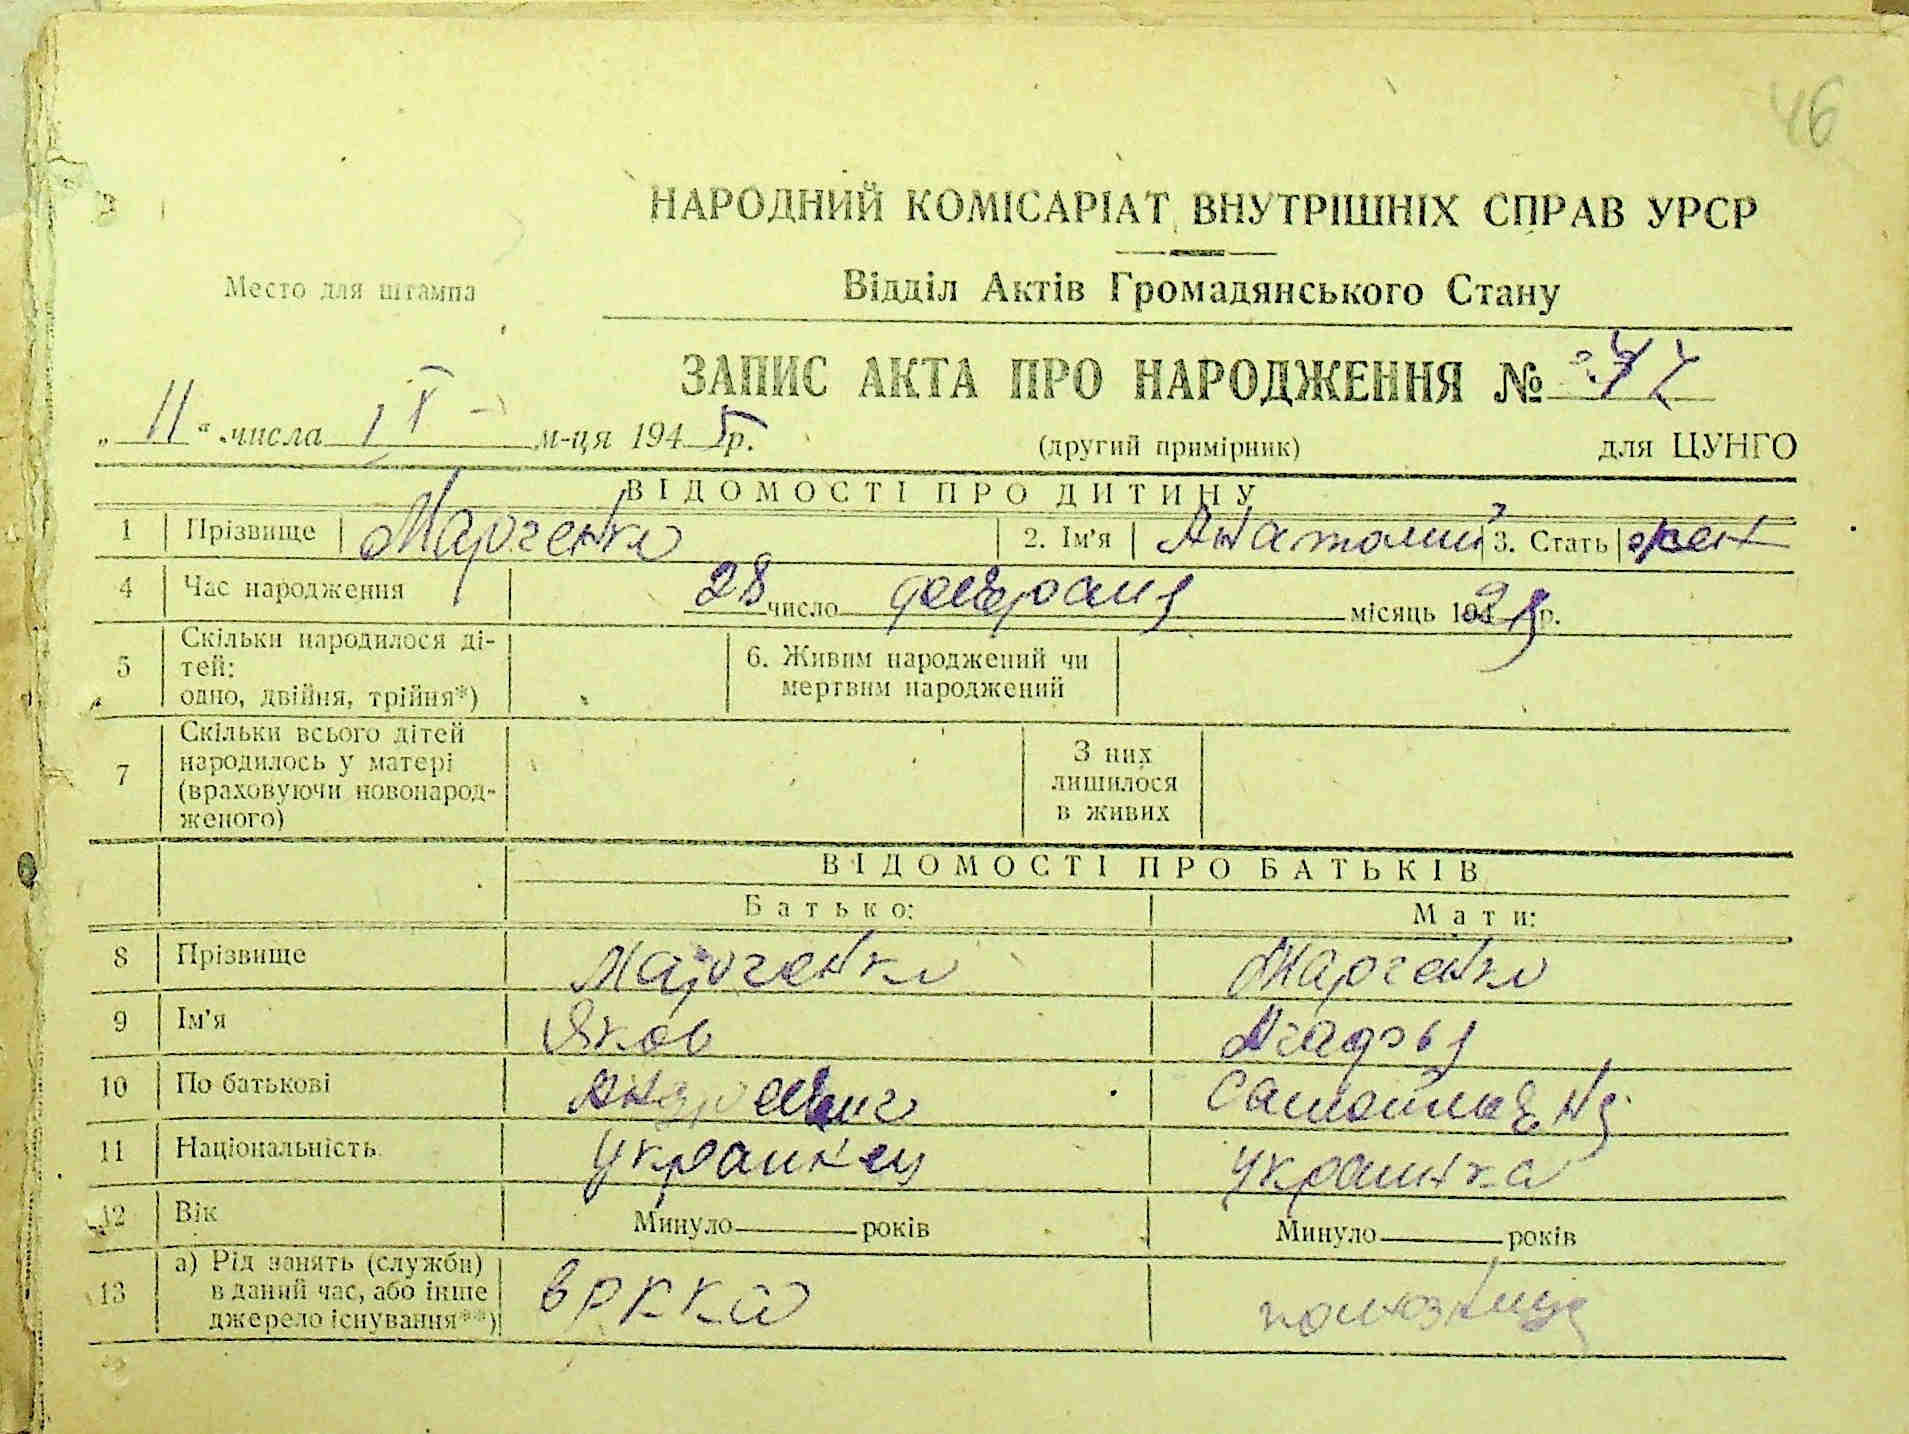 46
НАРОДНИЙ КОМІСАРІАТ ВНУТРІШНІХ СПРАВ УРСР
Место для штампа
Відділ Актів Громадянського Стану
ЗАПИС АКТА ПРО НАРОДЖЕННЯ №
„11“ числа IX м-ця 1945 р. (другий примірник) для ЦУНГО
ВІДОМОСТІ ПРО ДИТИНУ
1 Прізвище Марченко 2. Ім'я Анатолий 3. Стать
4 Час народження 28 число февраля місяць р.
5 Скільки народилося ді-
тей:
одно, двійня, трійня*) 6. Живим народжений чи
мертвим народжений
7 Скільки всього дітей
народилось у матері
(враховуючи новонарод-
женого) З них
лишилося
в живих
ВІДОМОСТІ ПРО БАТЬКІВ
Батько: Мати:
8 Прізвище Марченко Марченко
9 Ім'я Яков
10 По батькові Андреевич Самойловна
11 Національність украинец украинка
12 Вік Минуло років Минуло років
13 а) Рід занять (служби)
в даний час, або інше
джерело існування**) в РККА колхозница